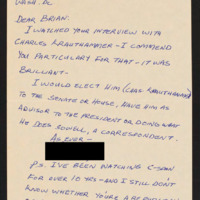 WASH. DC.
DEAR BRIAN:
I WATCHED YOUR INTERVIEW WITH
CHARLES KRAUTHAMMER - I COMMEND
YOU PARTICULARY FOR THAT - IT WAS
BRILLIANT -
I WOULD ELECT HIM (CHAS KRAUTHAMMER)
TO THE SENATE OR HOUSE, HAVE HIM AS
ADVISOR TO THE PRESIDENT OR DOING WHAT
HE DOES SO WELL, A CORRESPONDENT.
AS EVER -
P.S. I'VE BEEN WATCHING C-SPAN
FOR OVER 10 YRS - AND I STILL DON'T
KNOW WHETHER YOU'RE A REPUBLICAN